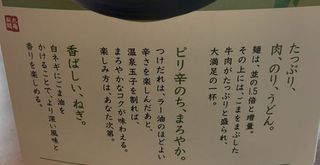 たっぷり、
肉、のり、うどん。
麺は、並の1.5倍に増量。
その上には、ごまをまぶした
牛肉がたっぷりと盛られ、
大満足の一杯。
ピリ辛のち、まろやか。
つけだれは、ラー油のほどよい
辛さを楽しんだあと、
温泉玉子を割れば、
まろやかなコクが味わえる。
楽しみ方は、あなた次第。
香ばしい、ねぎ。
白ネギにごま油を
かけることで、より深い風味と
香りを楽しめる。